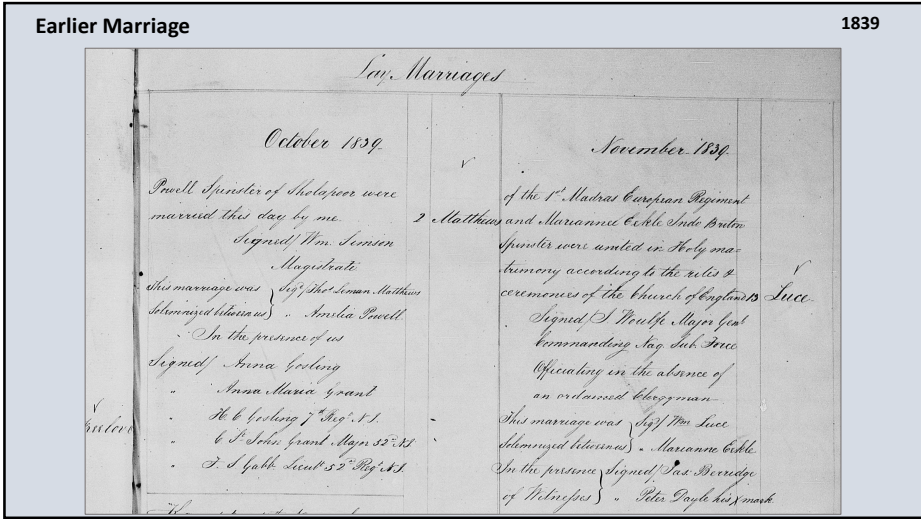 Earlier Marriage
1839
Lay Marriages
October 1839.
Powell Spinster of Sholapoor were
married this day by me.
Signed/ Wm. Simson
Magistrate
This marriage was } Sigd/ Thos. Leman Matthews
Solemnized between us } " Amelia Powell
In the presence of us
Signed/ Anna Gosling
" Anna Maria Grant
" H C Gosling 7th Regt N.I.
" C St John Grant Major 52d N.I.
" F. S Gabb Lieut 52d Regt N.I.
2 Matthews
November 1839.
of the 1st Madras European Regiment
and Mariannee Eckle Indo Briton
Spinster were united in Holy ma-
trimony according to the rites &
ceremonies of the Church of England
Signed/ J Woulfe Major Genl
Commanding Nag. Sub. Force
Officiating in the absence of
an ordained Clergyman
This marriage was } Sigd/ Wm Luce
Solemnized between us } " Marianne Eckle
In the presence } Signed/ Jas: Berridge
of Witnesses } " Peter Dayle his X mark
13 Luce